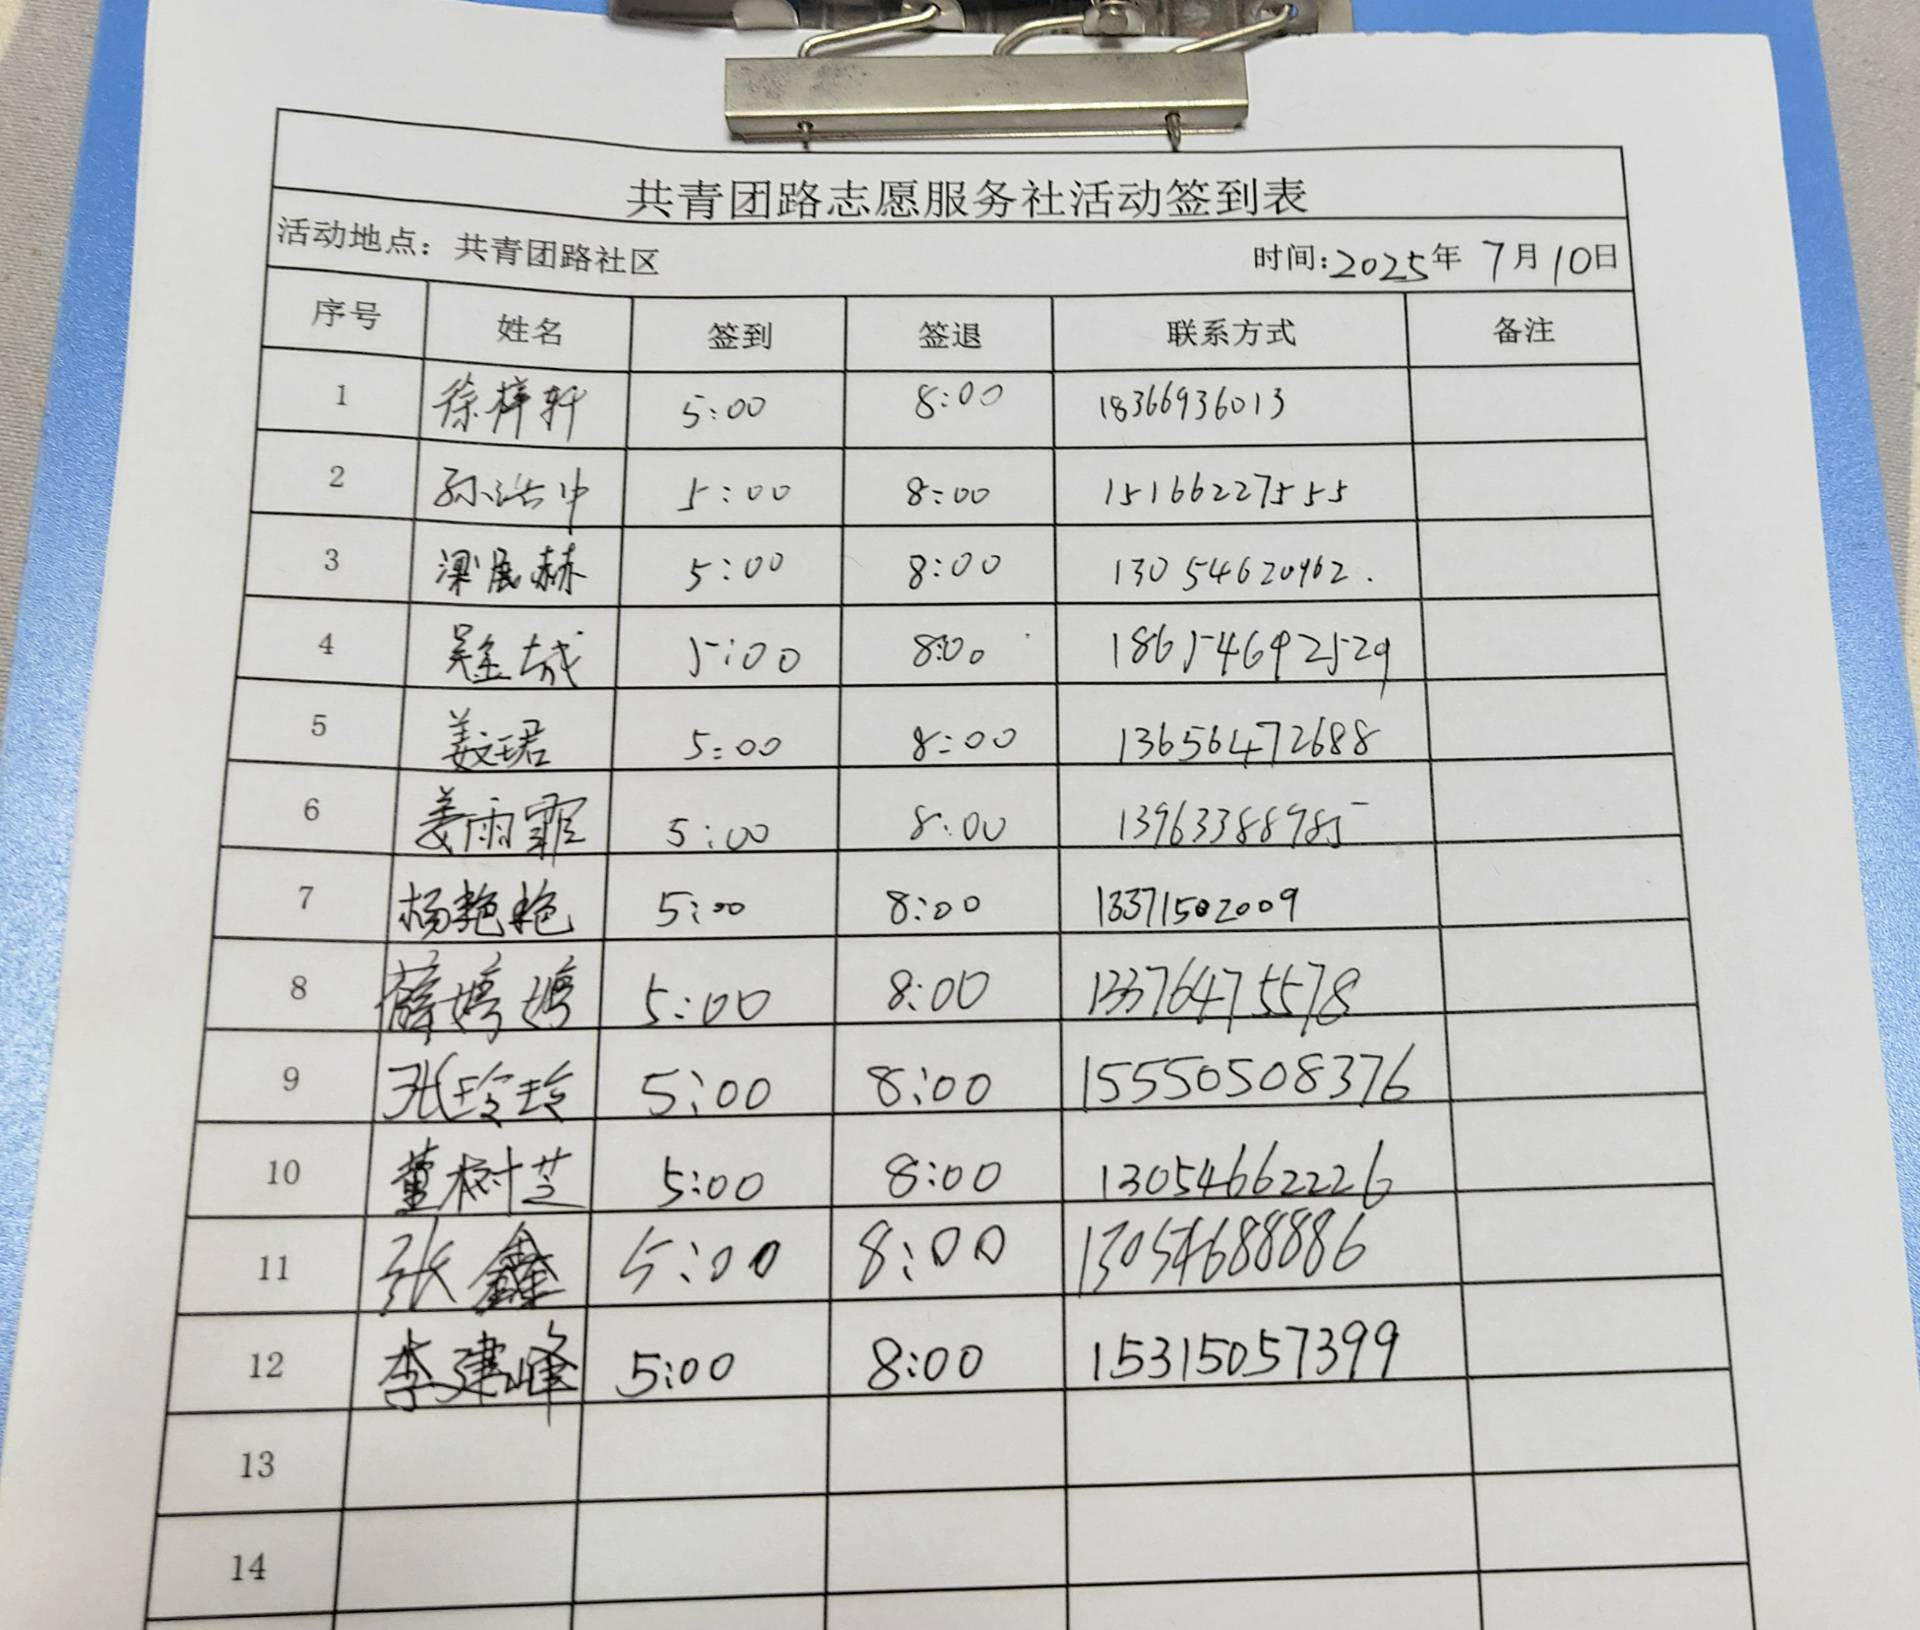 共青团路志愿服务社活动签到表
活动地点：共青团路社区 时间：2025年 7月10日
序号 姓名 签到 签退 联系方式 备注
1 徐梓轩 5:00 8:00 18366936013
2 孙浩中 5:00 8:00 15166227555
3 梁展赫 5:00 8:00 13054620962.
4 吴金城 5:00 8:00 18654692529
5 姜文珺 5:00 8:00 13656472688
6 姜雨霏 5:00 8:00 13963388985
7 杨艳艳 5:00 8:00 13371502009
8 薛婷婷 5:00 8:00 13376475578
9 张玲玲 5:00 8:00 15550508376
10 董树芝 5:00 8:00 13054662226
11 张鑫 5:00 8:00 13054688886
12 李建峰 5:00 8:00 15315057399
13
14